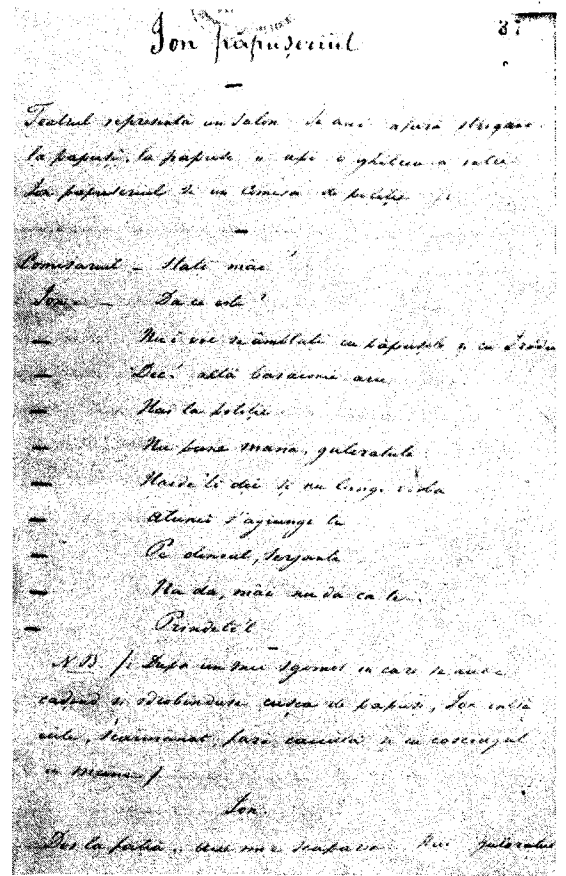 37
Ion păpușeriul
Teatrul representa un salon. Se aud afară strigări
la papuși, la papuși și apoi o ghiliciu a
Ion papuseriul și un Comisar de poliție
Comisariul – Stati măi!
Ion – Da ce este?
– Nu-i voe se âmblati cu păpușele și cu Irodu
– Dec! altă basaconie acu
– Hai la poliție
– Nu pune mana, guleratule
– Haide'ti dic și nu lungi vorba
– Atunci s'agiunge la
– Pe dinsul, serjante
– Nu da, măi nu da ca te
– Prindeti'l
N.B. /: Dupa un mic sgomot in care se aude
cadend si sdrobinduse cusca de papusi, Ion intră
iute, scarmanat, fara caciulă si cu cosciugul
in mana /
Ion.
Dus la fatia, mai scapare. guleratul